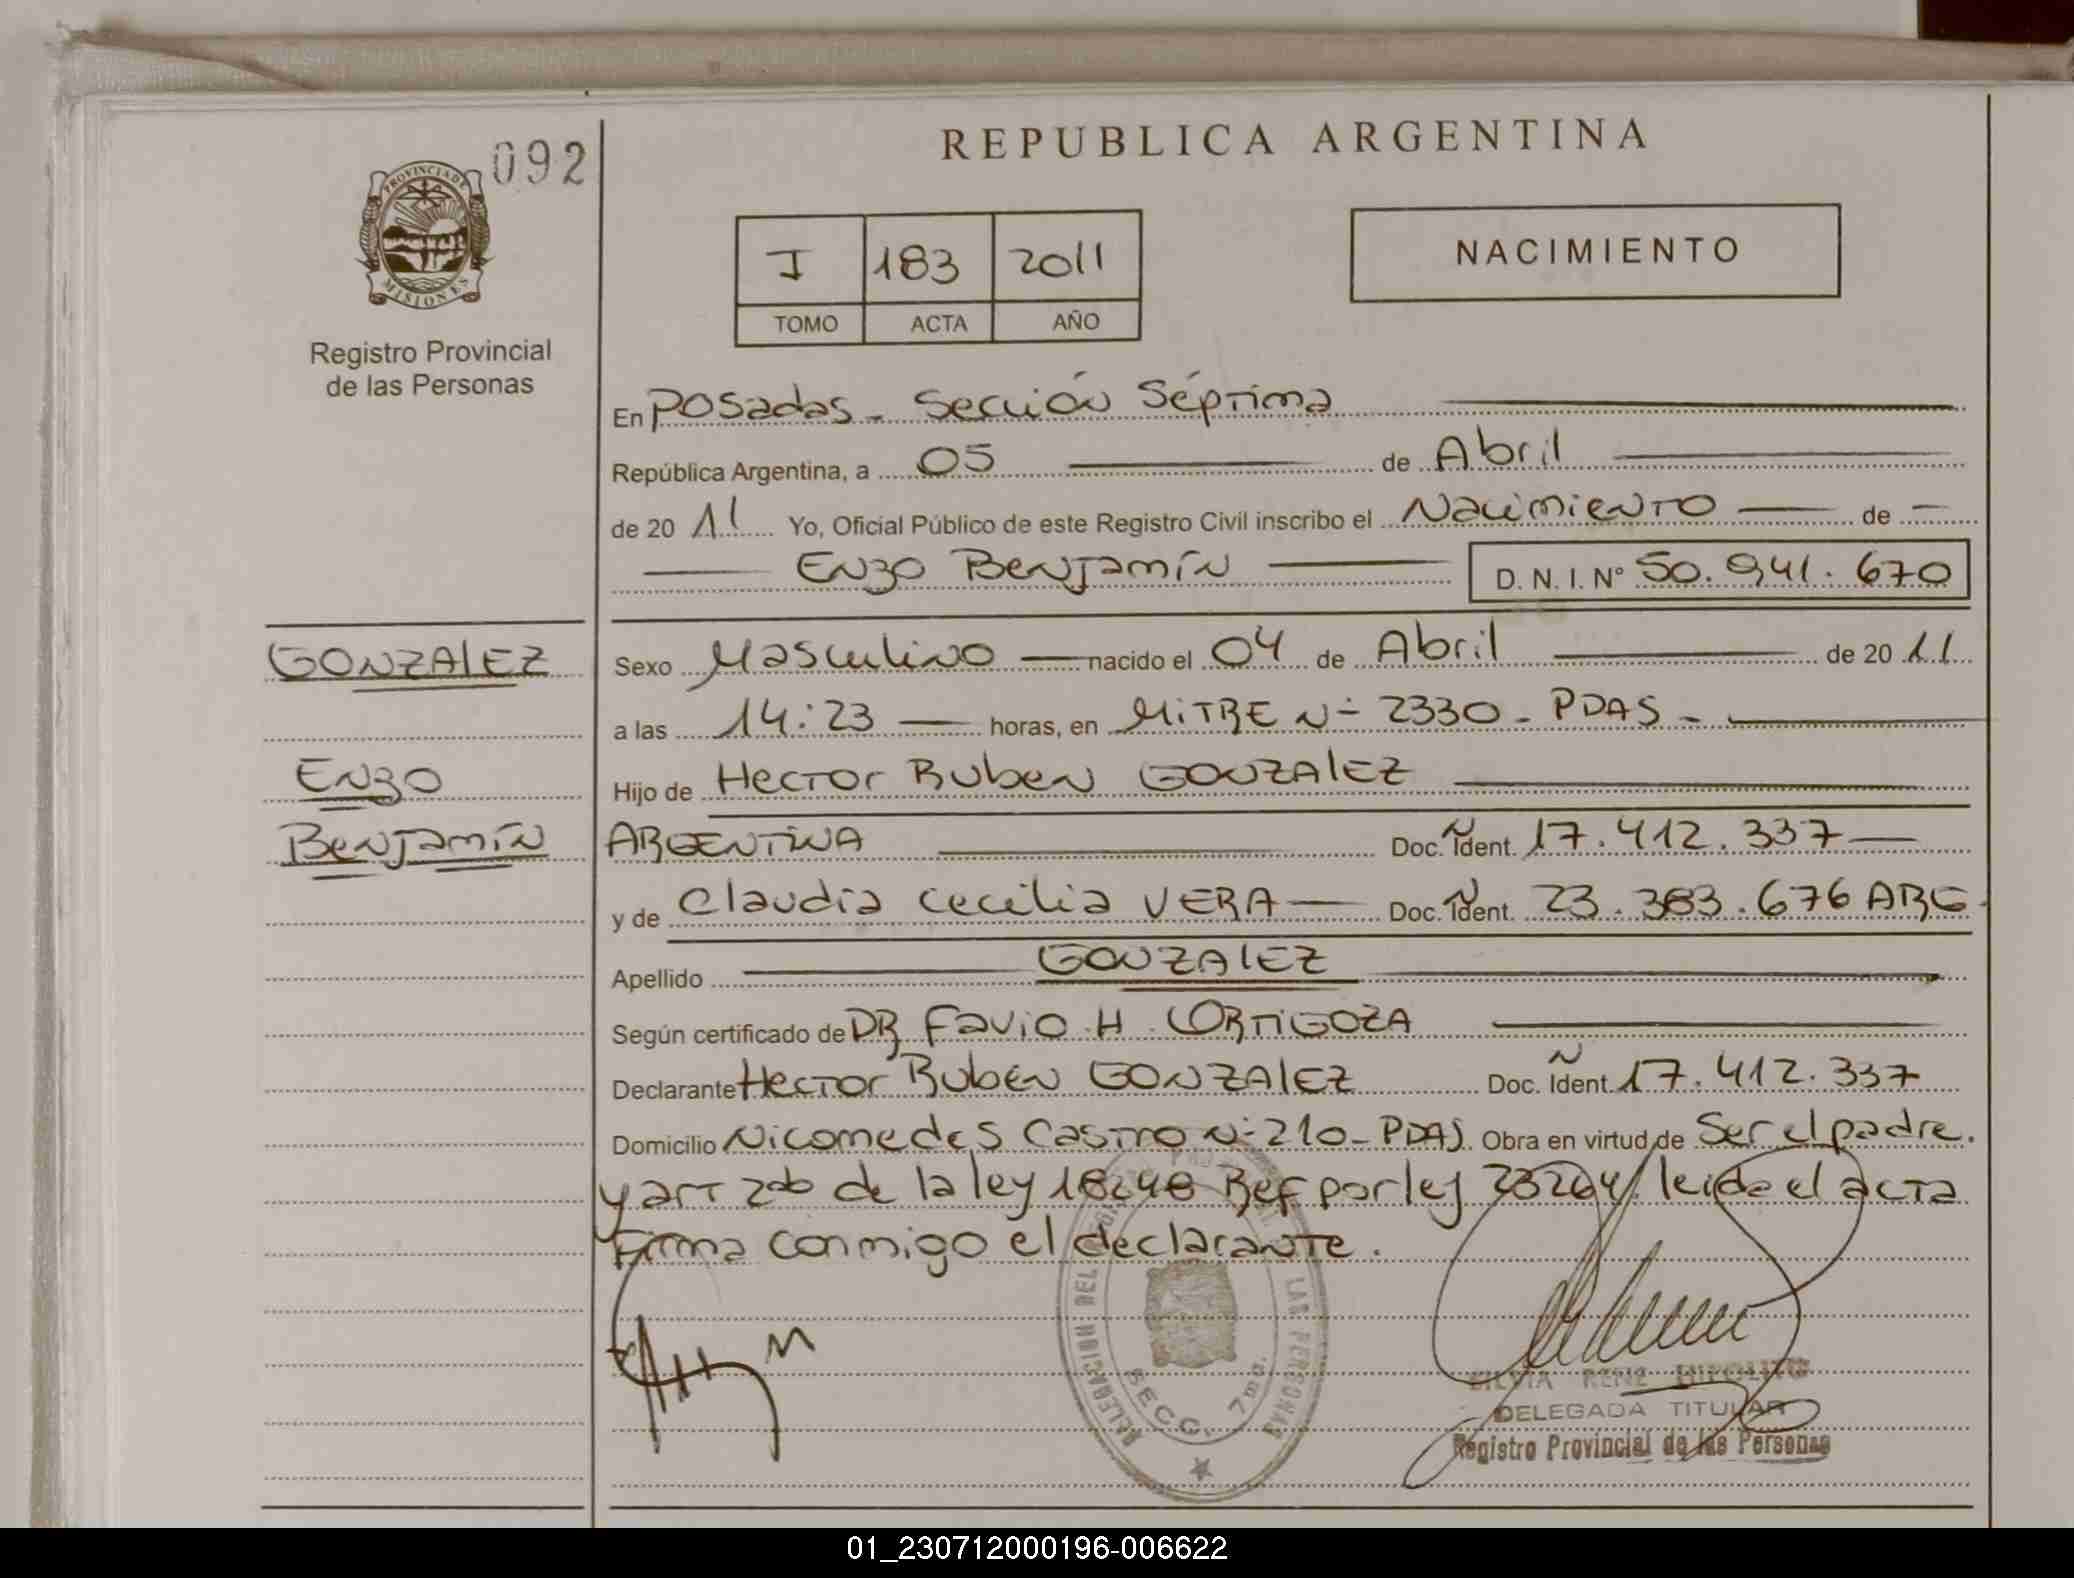 REPUBLICA ARGENTINA
092
PROVINCIA DE
MISIONES
Registro Provincial
de las Personas
I 183 2011
TOMO ACTA AÑO
NACIMIENTO
En Posadas - Sección Séptima
República Argentina, a 05 de Abril
de 20 11 Yo, Oficial Público de este Registro Civil inscribo el Nacimiento de
Enzo Benjamín D. N. I. N° 50.941.670
GONZALEZ
Enzo
Benjamín
Sexo Masculino nacido el 04 de Abril de 20 11
a las 14:23 horas, en MITRE N° 2330 - PDAS -
Hijo de Hector Ruben GONZALEZ
ARGENTINA Doc. Ñ Ident. 17.412.337
y de Claudia Cecilia VERA Doc. Ñ Ident. 23.383.676 ARG.
Apellido GONZALEZ
Según certificado de DR Favio H. ORTIGOZA
Declarante Hector Ruben GONZALEZ Doc. Ñ Ident. 17.412.337
Domicilio Nicomedes Castro N° 210 - PDAS. Obra en virtud de Ser el padre.
y art 2do de la ley 18248 Ref por ley 23264. leida el acta
Firma conmigo el declarante.
DELEGACION DEL LAS PERSONAS
SECC. 7ma.
SILVIA RENE HIPOLITO
DELEGADA TITULAR
Registro Provincial de las Personas
01_230712000196-006622